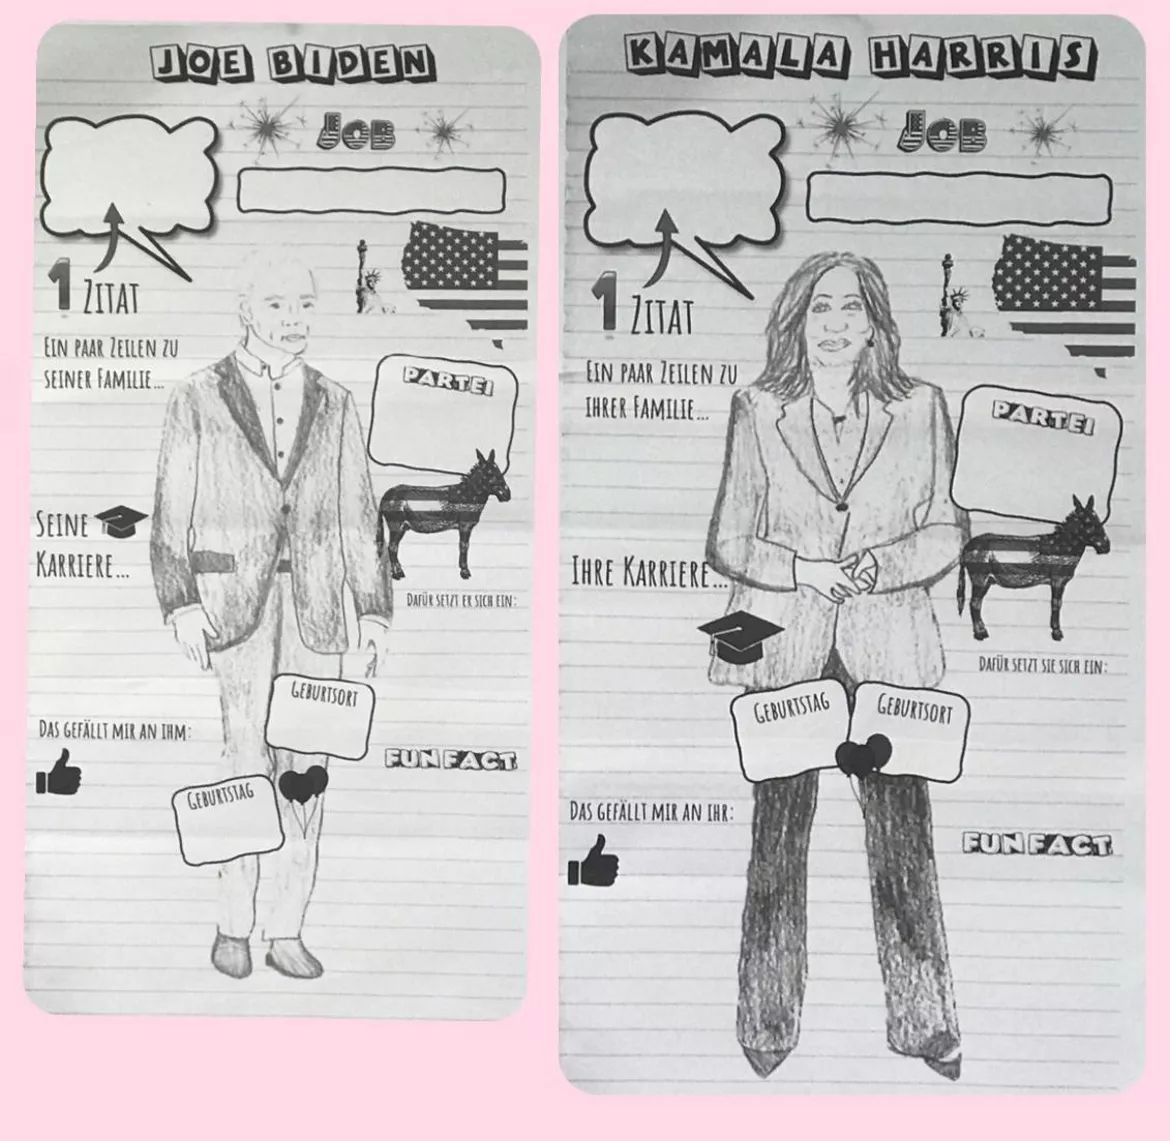 JOE BIDEN
JOB
1 ZITAT
EIN PAAR ZEILEN ZU
SEINER FAMILIE...
PARTEI
SEINE
KARRIERE...
DAFÜR SETZT ER SICH EIN:
GEBURTSORT
DAS GEFÄLLT MIR AN IHM:
FUN FACT
GEBURTSTAG
KAMALA HARRIS
JOB
1 ZITAT
EIN PAAR ZEILEN ZU
IHRER FAMILIE...
PARTEI
IHRE KARRIERE...
DAFÜR SETZT SIE SICH EIN:
GEBURTSTAG
GEBURTSORT
DAS GEFÄLLT MIR AN IHR:
FUN FACT